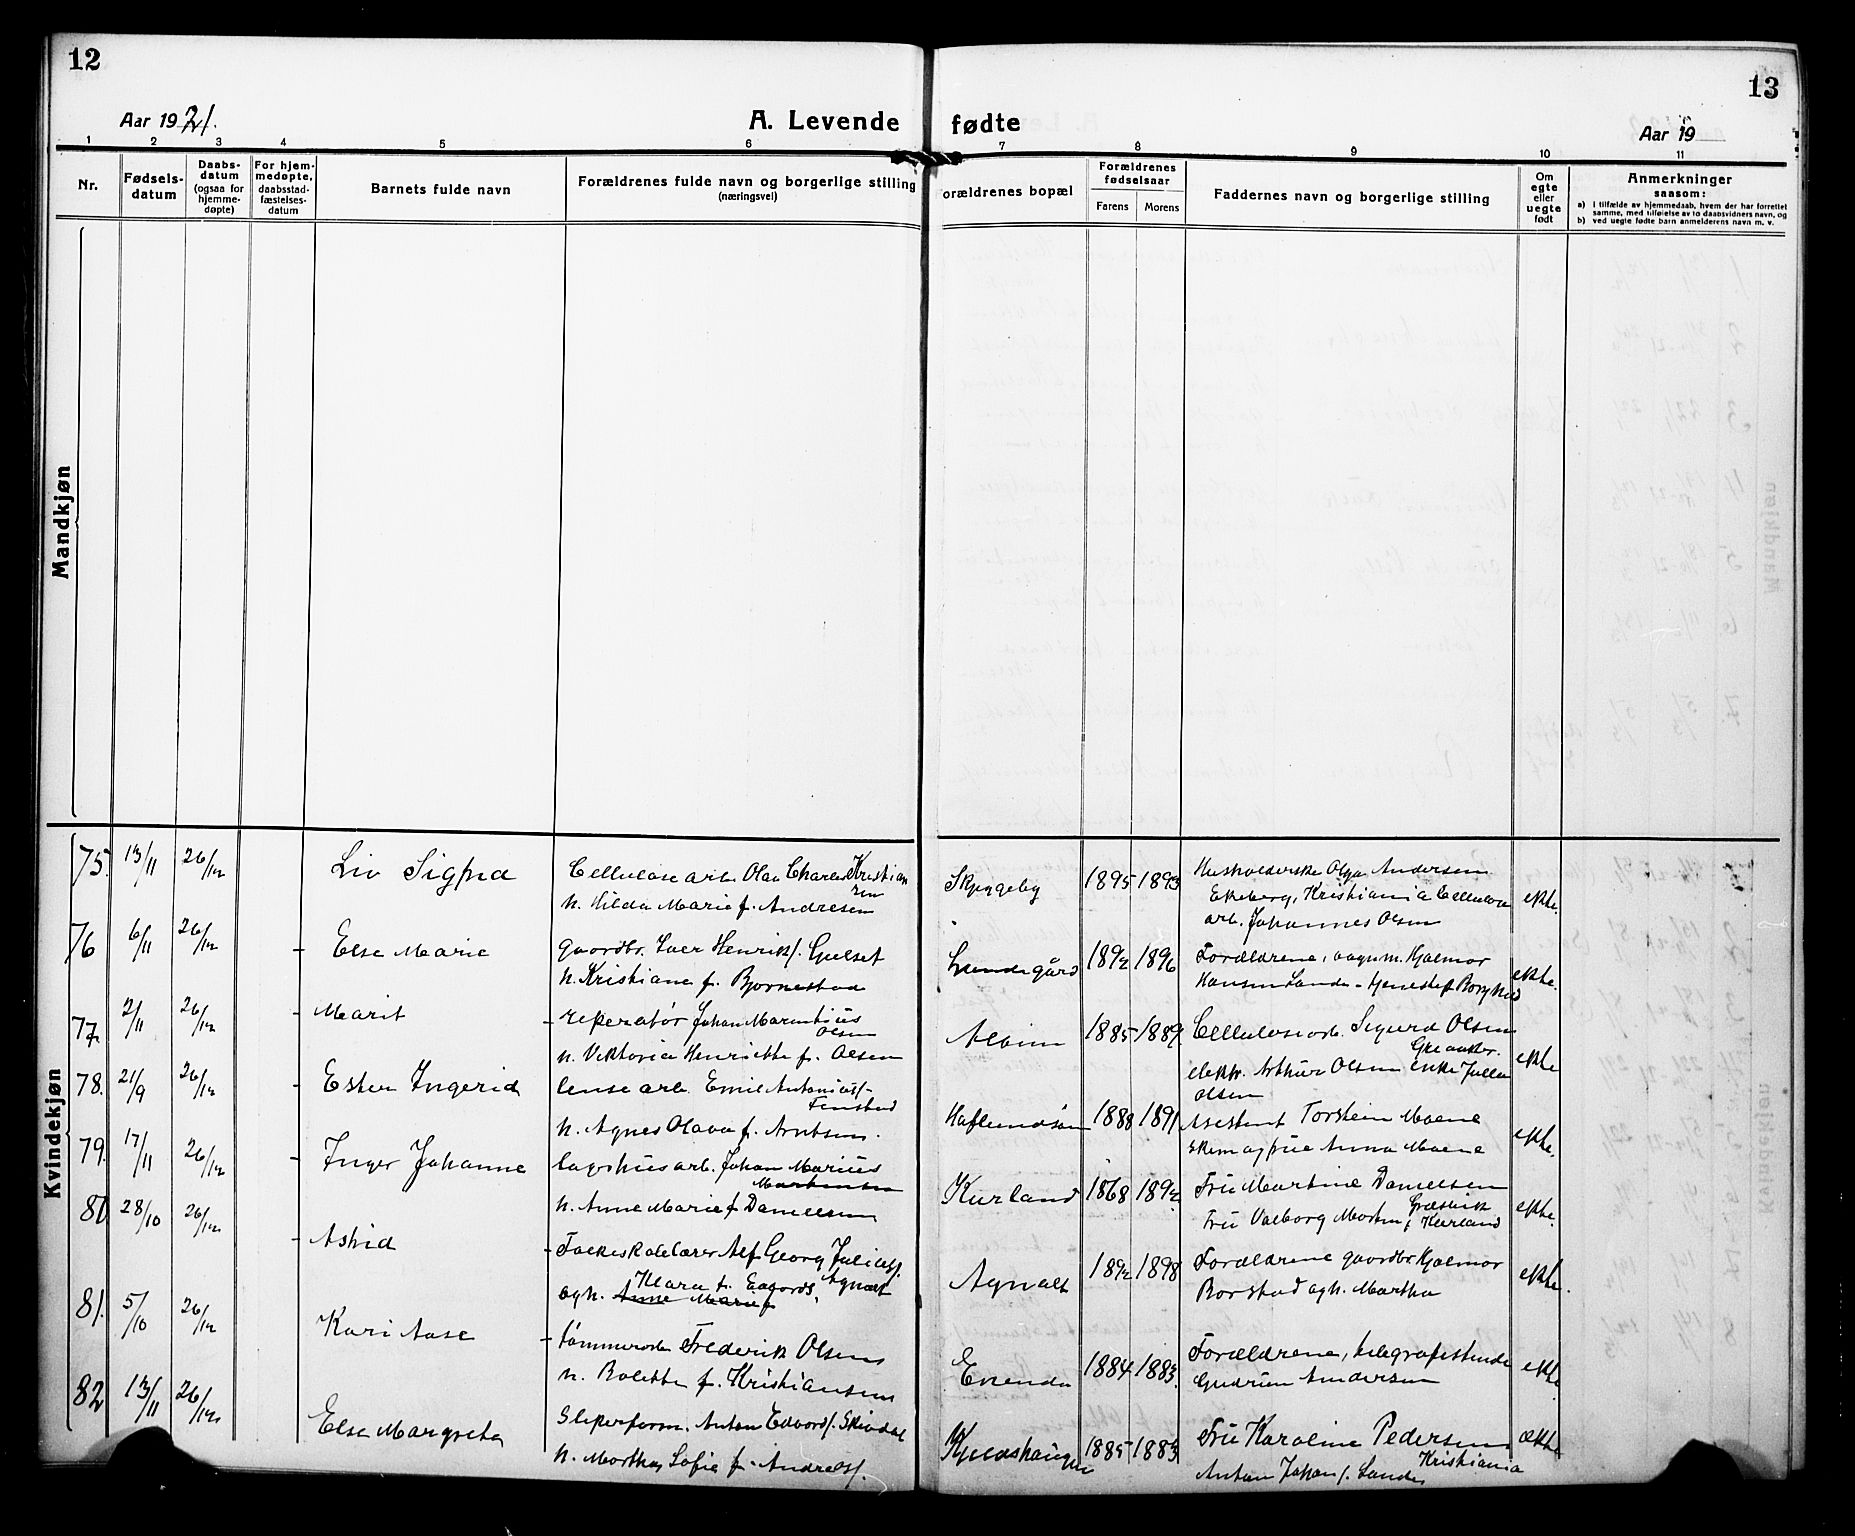 12
13
Aar 1921.
A. Levende
fødte
Aar 19
1 2 3 4 5 6 7 8 9 10 11
Nr.
Fødsels-
datum
Daabs-
datum
(ogsaa for
hjemme-
døpte)
For hjem-
medøpte,
daabsstad-
fæstelses-
datum
Barnets fulde navn
Forældrenes fulde navn og borgerlige stilling
(næringsvei)
orældrenes bopæl
Forældrenes
fødselsaar
Farens Morens
Faddernes navn og borgerlige stilling
Om
egte
eller
uegte
født
Anmerkninger
saasom:
a) I tilfælde av hjemmedaab, hvem der har forrettet
samme, med tilføielse av to daabsvidners navn, og
b) ved uegte fødte barn anmelderens navn m. v.
Mandkjøn
Kvindekjøn
75. 13/11 26/12 Liv Sigrid
Cellulosearb. Olav Charles Kristian
sen
h. Hilda Marie f. Andresen
Skjeggeby 1895 1893
Husholderske Olga Andersen
Ekeberg, Kristiania Cellulose
arb. Johannes Olsen
ekte.
76 6/11 26/12 - Else Marie
gaardbr. Iver Henrik f. Gulset
h. Kristiane f. Bjørnestad
Lundegård 1892 1896
Forældrene, vognm. Hjalmar
Hansen Lande
ekte.
77 2/11 26/12 - Marit
- reperatør Johan Marentius
Olsen
h. Viktoria Henriette f. Olsen
Alvim 1885 1889
Cellulosearb. Sigurd Olsen
Greaaker.
elektr. Arthur Olsen enke Julla
Olsen
ekte
78. 21/9 26/12 - Ester Ingerid
lensearb. Emil Antonius
Finstad
h. Agnes Olava f. Arntsen.
Haflundsøn 1888 1891
Assistent Torstein Moene
Anna Moene
ekte.
79. 17/11 26/12 - Inger Johanne
lagshusarb. Johan Marius
Martinsen
h. Anne Marie f Danielsen
Kurland 1868 1892
Fru Martine Danielsen
Græsvik
Fru Valborg Morten f Kurland
ekte.
80 28/10 26/12 - Astrid
- Folkeskolelærer Alf Georg Julius f.
Agnalt
ogh. Klara f. Edvards,
Anne Marie f
Agnalt 1892 1898
Forældrene gaardbr. Hjalmar
Borstad ogh. Martha
ekte.
81. 5/10 26/12 Kari Aase
- tømmerarb. Frederik Olsen
h. Bolette f. Kristiansen
Enenda 1884 1883.
Forældrene, telegrafistinde
Gudrun Andersen
ekte.
82 13/11 26/12 Else Margrete
Sliperform. Anton Edvard f. Skivdal
h. Marthe Sofie f. Andreas f.
Kjeldshaugen 1885 1883
Fru Karoline Pedersen
Kristiania
Anton Johan f. Sande
ækte